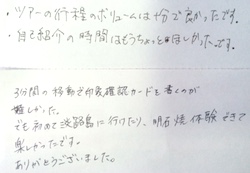 ・ツアーの行程のボリュームは十分で良かったです。
・自己紹介の時間はもうちょっとほしかったです。
3分間の移動で印象確認カードを書くのが
難しかった。
でも初めて淡路島に行けたり、明石焼体験できて
楽しかったです。
ありがとうございました。